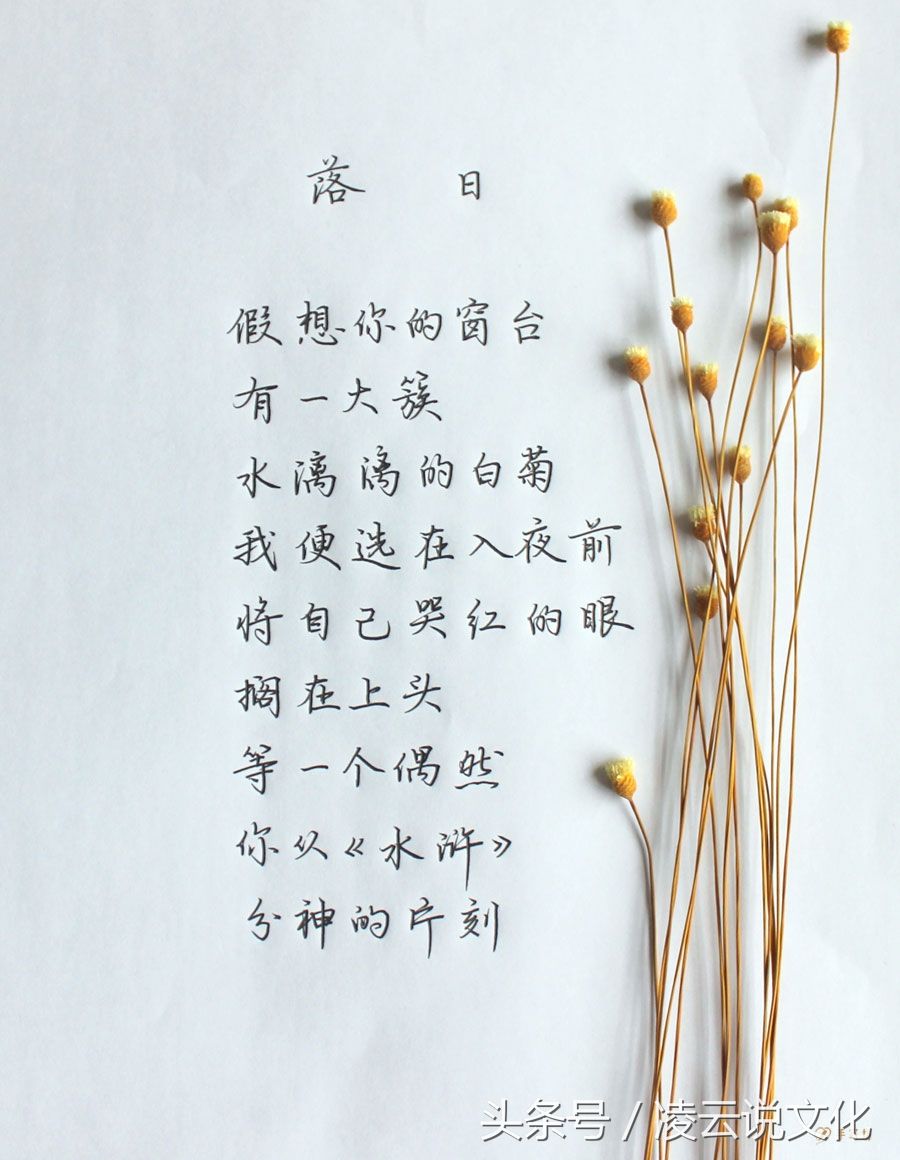 落 日
假想你的窗台
有一大簇
水漓漓的白菊
我便选在入夜前
将自己哭红的眼
搁在上头
等一个偶然
你从《水浒》
分神的片刻
头条号 / 凌云说文化